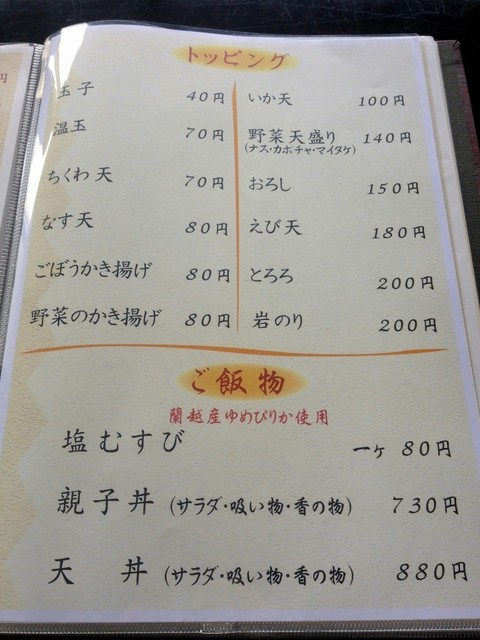 トッピング
玉子 40円
温玉 70円
ちくわ天 70円
なす天 80円
ごぼうかき揚げ 80円
野菜のかき揚げ 80円
いか天 100円
野菜天盛り 140円
(ナス・カボチャ・マイタケ)
おろし 150円
えび天 180円
とろろ 200円
岩のり 200円
ご飯物
蘭越産ゆめぴりか使用
塩むすび 一ヶ 80円
親子丼 (サラダ・吸い物・香の物) 730円
天丼 (サラダ・吸い物・香の物) 880円
円